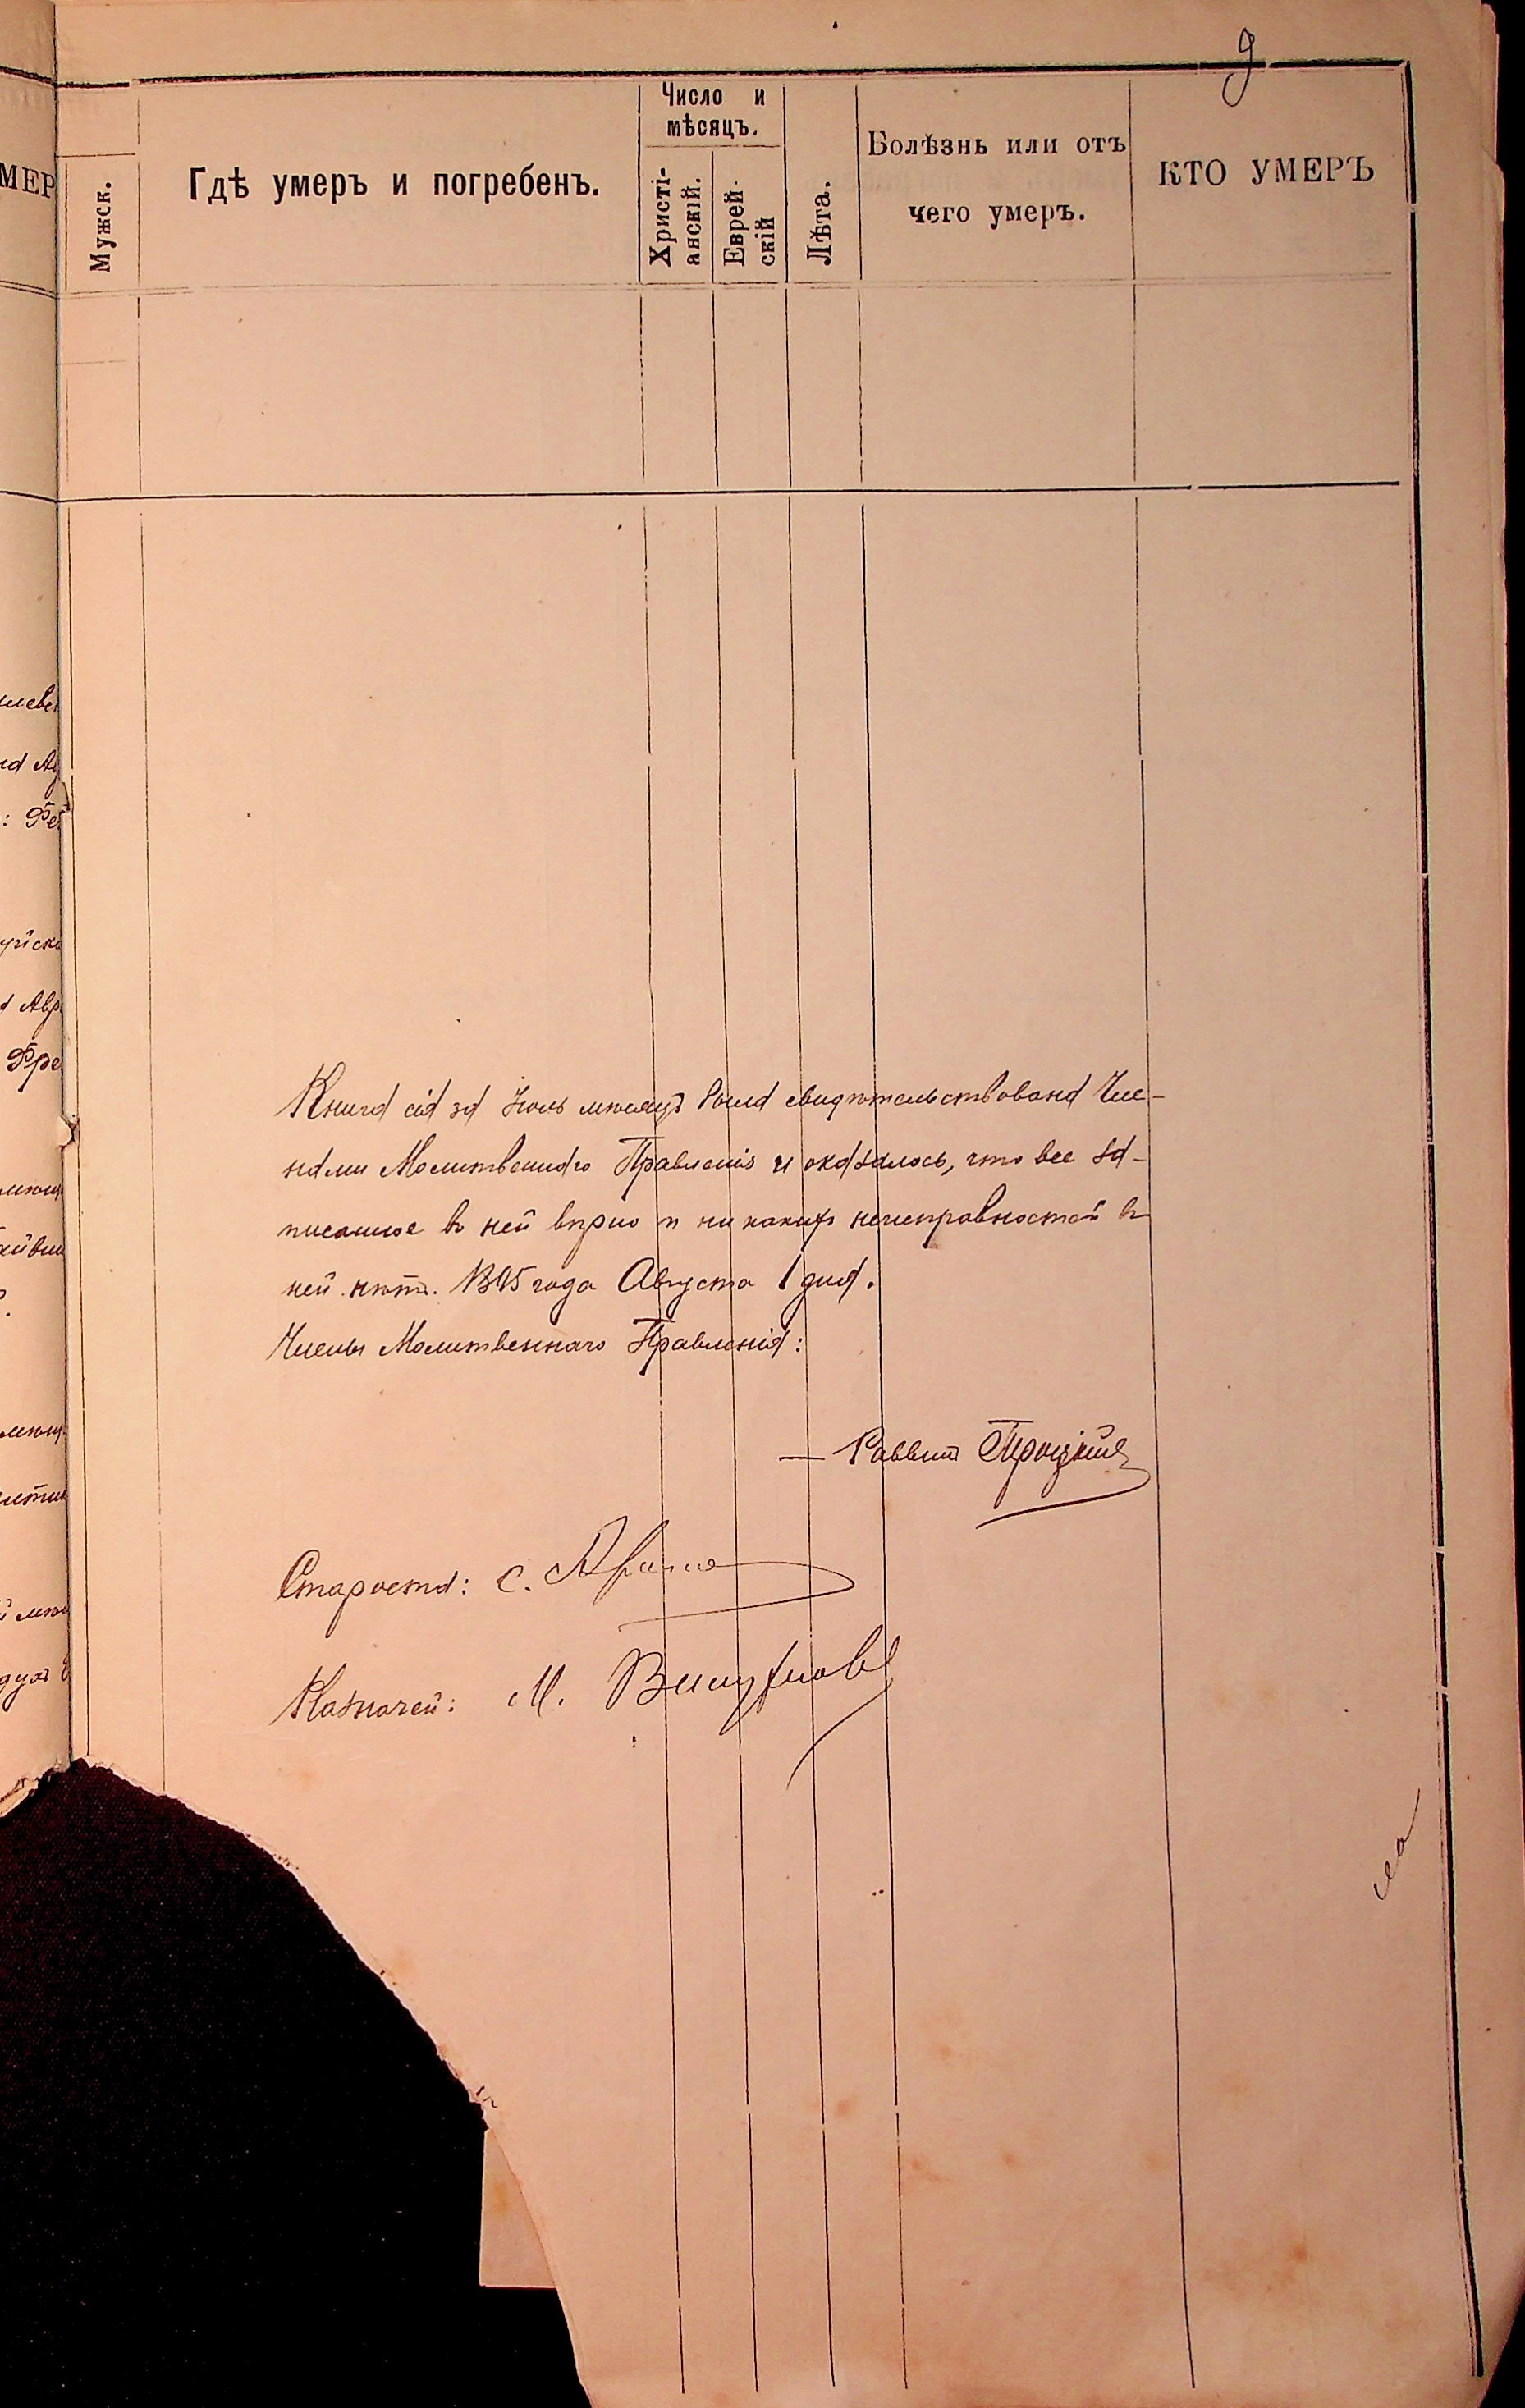 9
МЕР
Мужск.
Гдѣ умеръ и погребенъ.
Число и
мѣсяцъ.
Христі-
анскій.
Еврей-
скій
Лѣта.
Болѣзнь или отъ
чего умеръ.
КТО УМЕРЪ
Книга сія за Іюль мѣсяцъ была свидѣтельствована Чле-
нами Молитвеннаго Правленія и оказалось, что все за-
писанное въ ней вѣрно и никакихъ неисправностей въ
ней нѣтъ. 1895 года Августа 1 дня.
Члены Молитвеннаго Правленія:
— Раввинъ
Староста: С.
Казначей: М.